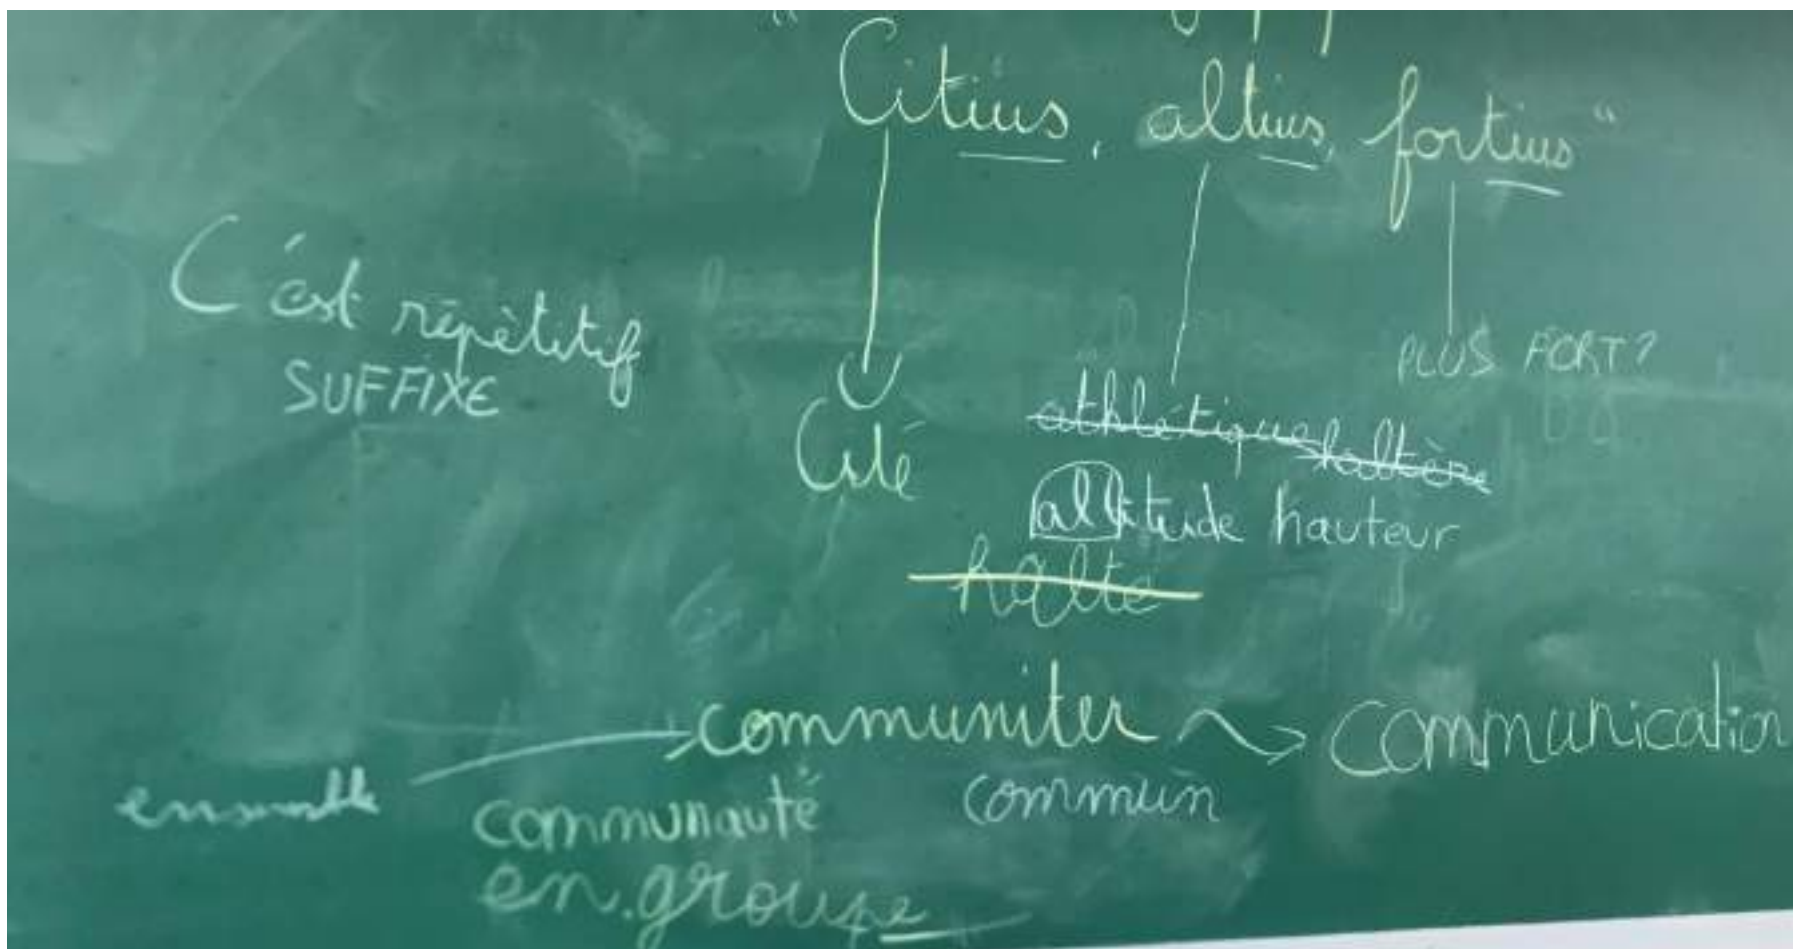 "Citius, altius, fortius"
C'est répètitif
SUFFIXE
PLUS FORT?
Cité
athlétique haltère
altitude hauteur
halte
communiter → Communication
ensemble
communauté
commun
en groupe